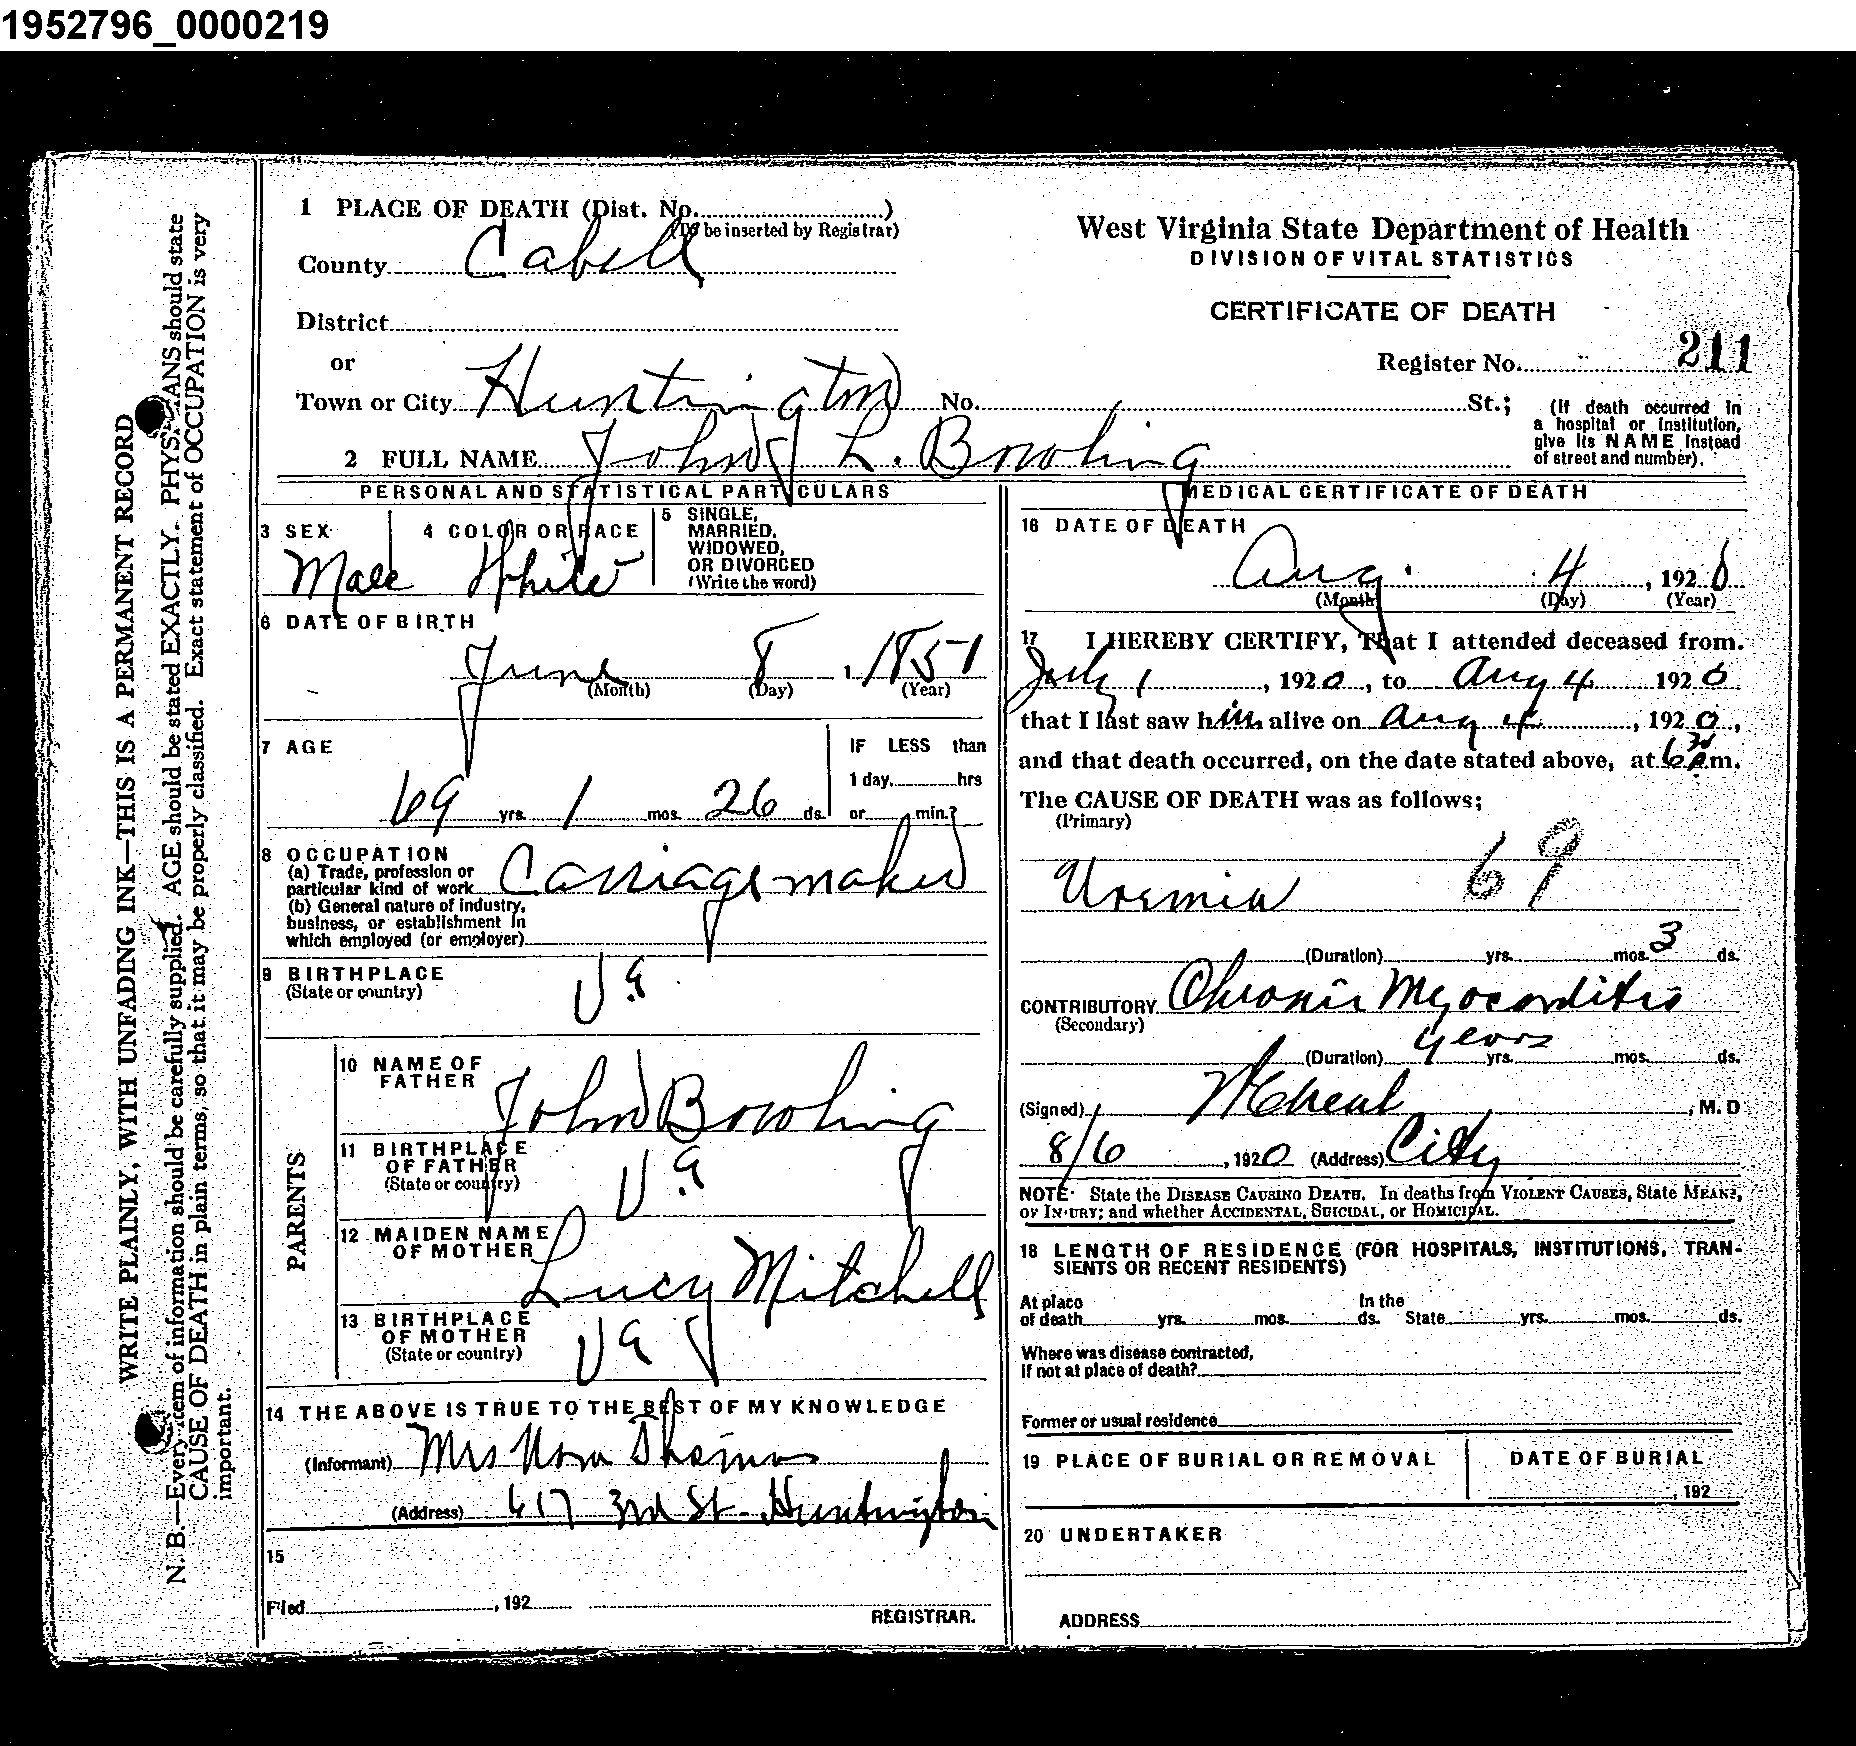 1952796_0000219
WRITE PLAINLY, WITH UNFADING INK—THIS IS A PERMANENT RECORD
N. B.—Every item of information should be carefully supplied. AGE should be stated EXACTLY. PHYSICIANS should state
CAUSE OF DEATH in plain terms, so that it may be properly classified. Exact statement of OCCUPATION is very
important.
1 PLACE OF DEATH (Dist. No. )
(To be inserted by Registrar)
County Cabell
District
or
Town or City Huntington No. St.;
(If death occurred in
a hospital or institution,
give its NAME instead
of street and number).
West Virginia State Department of Health
DIVISION OF VITAL STATISTICS
CERTIFICATE OF DEATH
Register No. 211
2 FULL NAME John L. Bowling
PERSONAL AND STATISTICAL PARTICULARS
3 SEX
Male
4 COLOR OR RACE
White
5 SINGLE,
MARRIED,
WIDOWED,
OR DIVORCED
(Write the word)
6 DATE OF BIRTH
June 8, 1851
(Month) (Day) (Year)
7 AGE
69 yrs. 1 mos. 26 ds.
IF LESS than
1 day, hrs
or min.?
8 OCCUPATION
(a) Trade, profession or
particular kind of work Carriage maker
(b) General nature of industry,
business, or establishment in
which employed (or employer)
9 BIRTHPLACE
(State or country)
Va.
PARENTS
10 NAME OF
FATHER
John Bowling
11 BIRTHPLACE
OF FATHER
(State or country)
Va.
12 MAIDEN NAME
OF MOTHER
Lucy Mitchell
13 BIRTHPLACE
OF MOTHER
(State or country)
Va
14 THE ABOVE IS TRUE TO THE BEST OF MY KNOWLEDGE
(Informant) Mrs Nora Thomas
(Address) 617 3rd St- Huntington
15
Filed , 192
REGISTRAR.
MEDICAL CERTIFICATE OF DEATH
16 DATE OF DEATH
Aug. 4, 1920
(Month) (Day) (Year)
17 I HEREBY CERTIFY, That I attended deceased from
July 1, 1920, to Aug 4 1920
that I last saw him alive on Aug 4, 1920,
and that death occurred, on the date stated above, at 6 30 m.
The CAUSE OF DEATH was as follows;
(Primary)
Uremia 69
(Duration) yrs. mos. 3 ds.
CONTRIBUTORY Chronic Myocarditis
(Secondary)
(Duration) years yrs. mos. ds.
(Signed) , M. D
8/6, 1920 (Address) City
NOTE: State the DISEASE CAUSING DEATH. In deaths from VIOLENT CAUSES, State MEANS,
OF INJURY; and whether ACCIDENTAL, SUICIDAL, or HOMICIPAL.
18 LENGTH OF RESIDENCE (FOR HOSPITALS, INSTITUTIONS, TRAN-
SIENTS OR RECENT RESIDENTS)
At place In the
of death yrs. mos. ds. State yrs. mos. ds.
Where was disease contracted,
if not at place of death?
Former or usual residence
19 PLACE OF BURIAL OR REMOVAL
DATE OF BURIAL
, 192
20 UNDERTAKER
ADDRESS